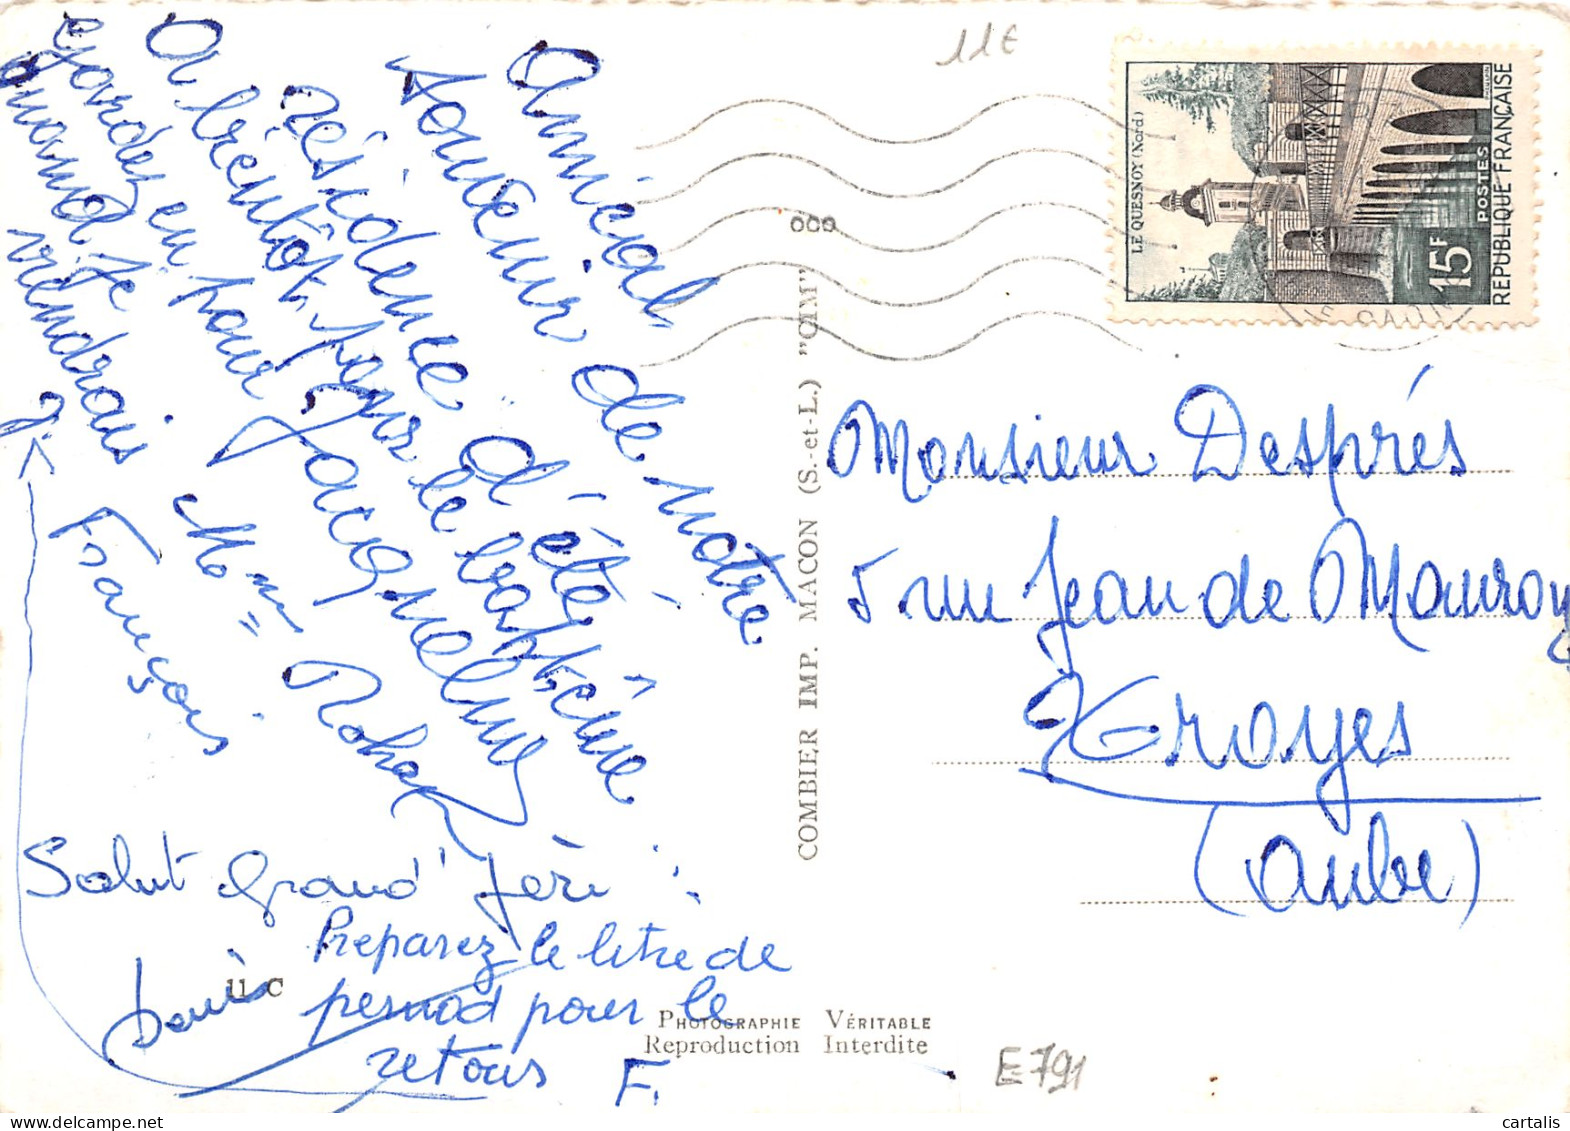 11€
Amical
souvenir de notre
résidence d'été
A bientôt, pour le baptême
gardez en pour Jacqueline
quand je
viendrais
Mme
François
Salut Grand Père
Denis
Preparez le litre de
pernod pour le
retour F.
11 C
COMBIER IMP. MACON (S.-et-L.) "CIM"
PHOTOGRAPHIE VÉRITABLE
Reproduction Interdite
LE QUESNOY (Nord)
15F
POSTES
REPUBLIQUE FRANÇAISE
Monsieur Després
5 rue Jean de Mauroy
Troyes
(Aube)
E791
cartalis
cartorum.fr